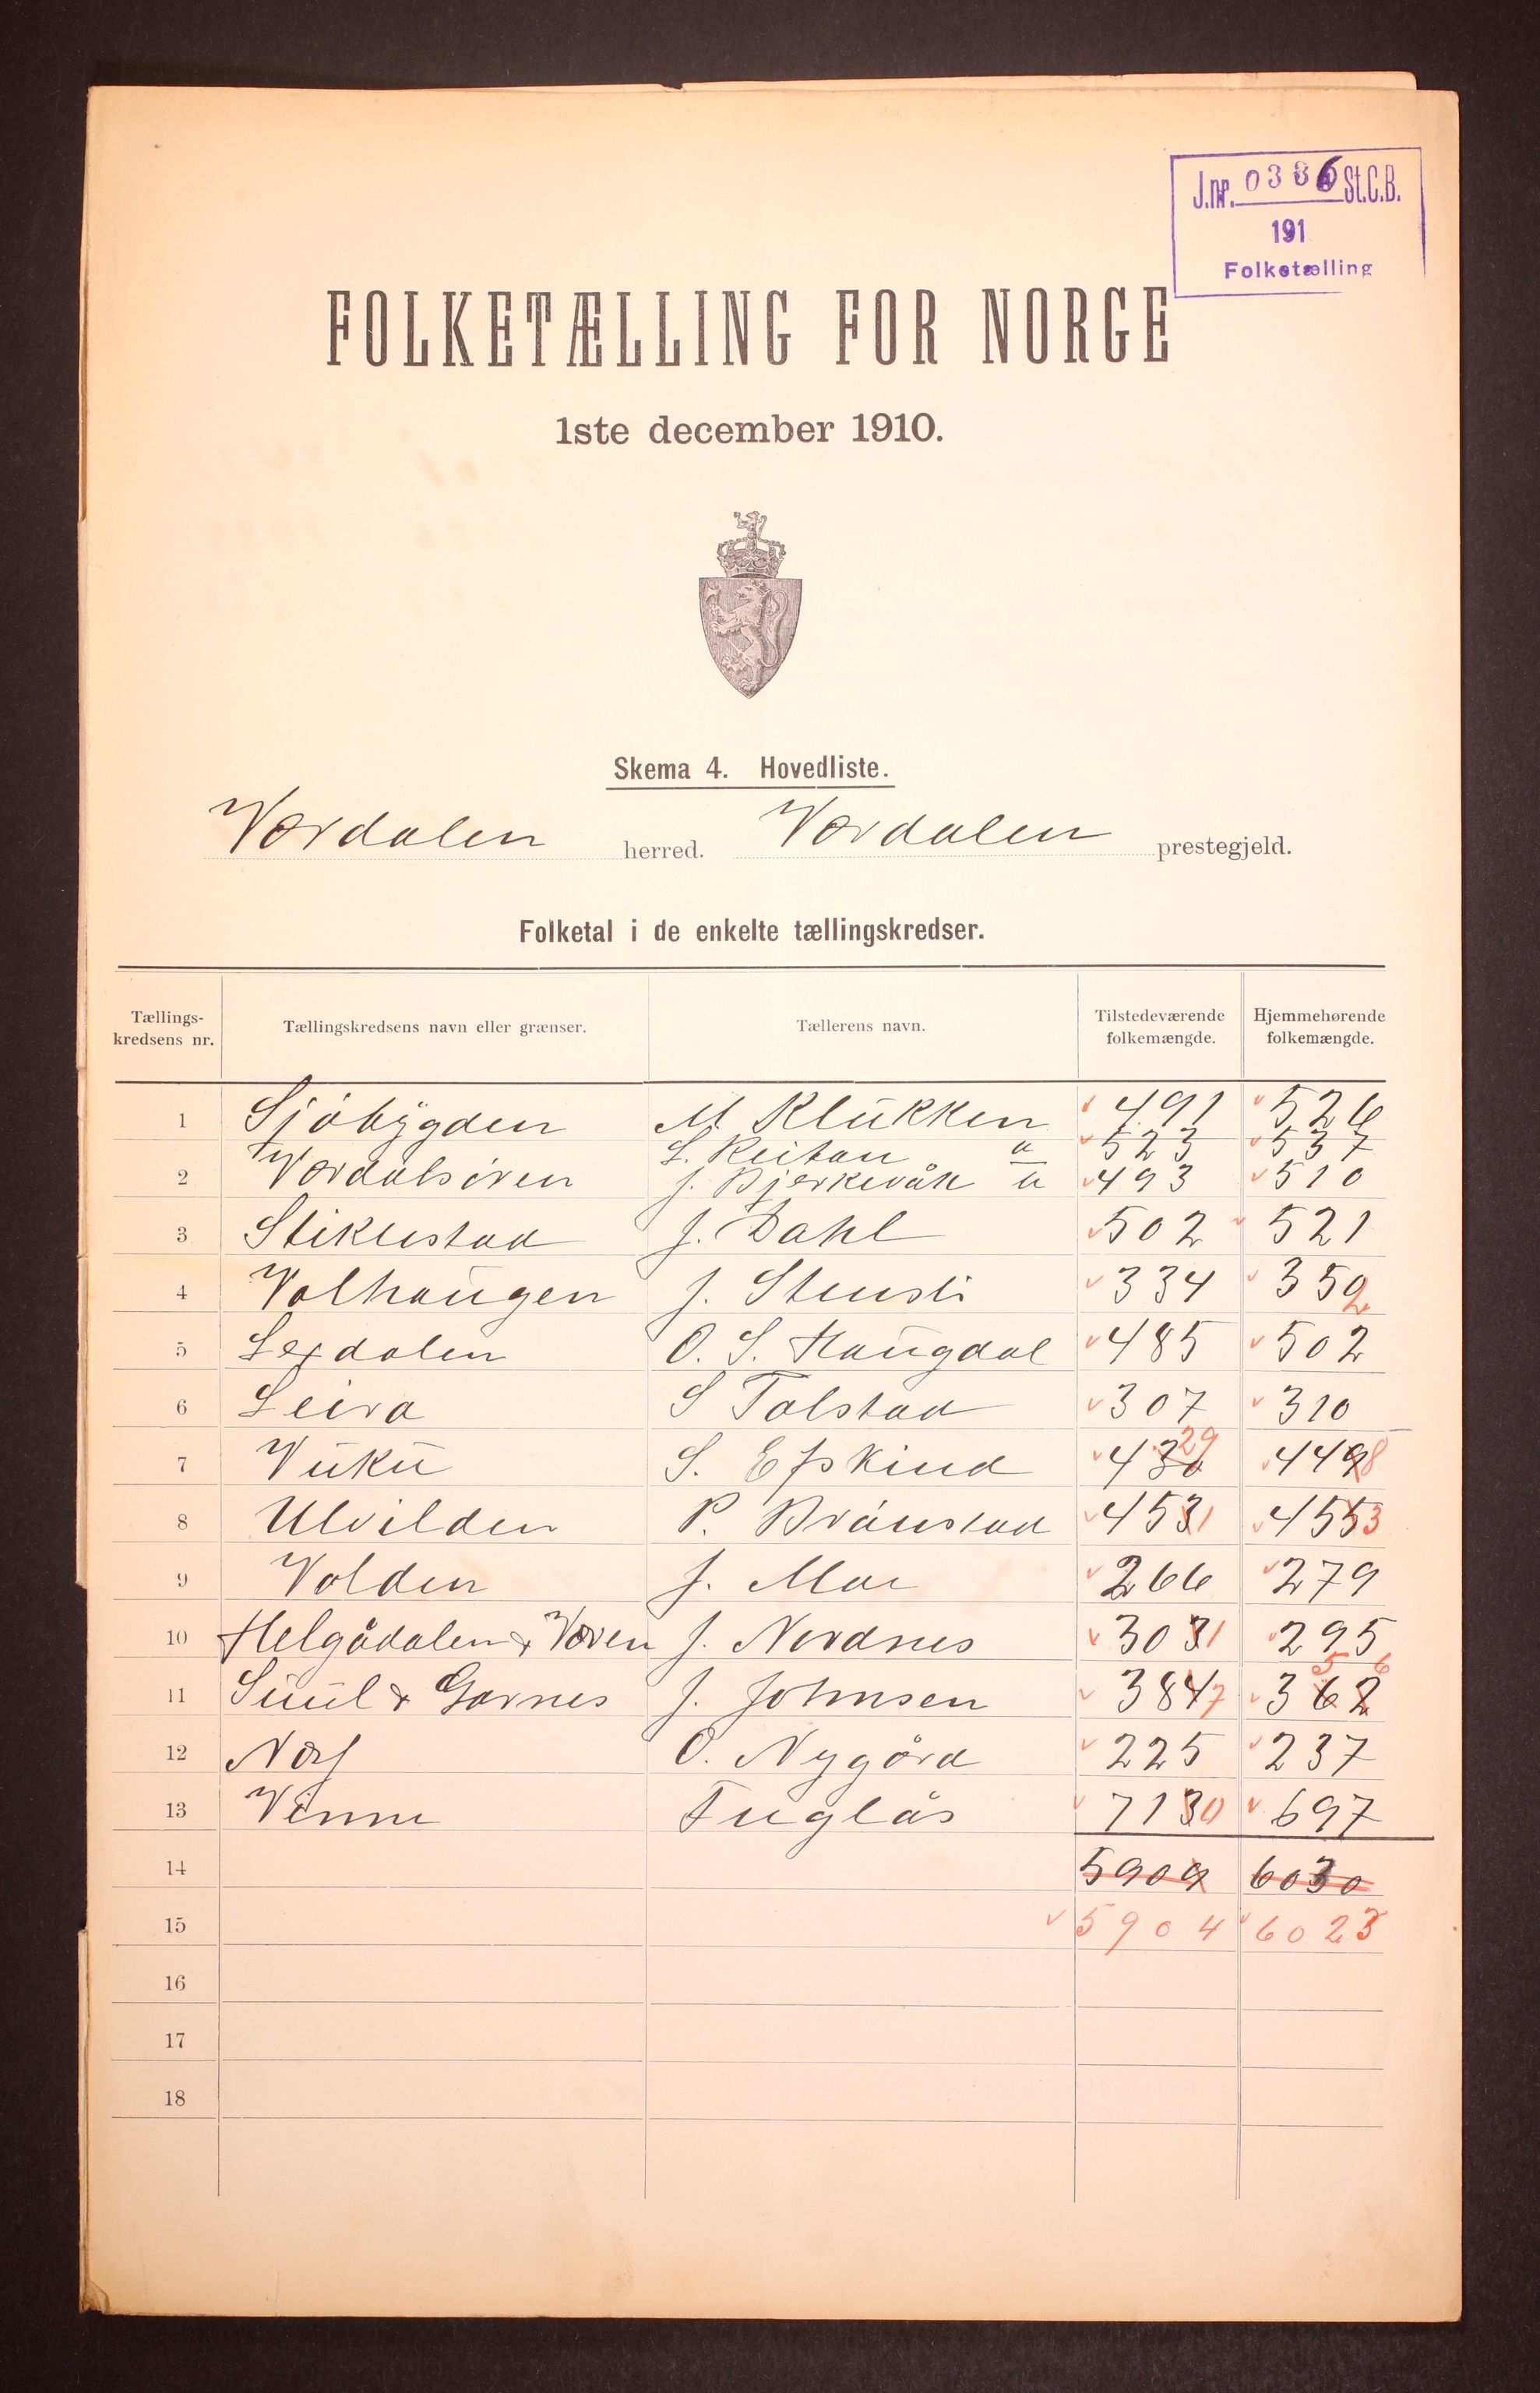 J.nr. 0336 St.C.B.
191
Folketælling
FOLKETÆLLING FOR NORGE
1ste december 1910.
Skema 4. Hovedliste.
Værdalen herred. Værdalen prestegjeld.
Folketal i de enkelte tællingskredser.
Tællings-kredsens nr. Tællingskredsens navn eller grænser. Tællerens navn. Tilstedeværende folkemængde. Hjemmehørende folkemængde.
1 Sjøbygden M Klükken 491 526
L. Reitan a 523 537
2 Værdalsøren J. Bjerkvåk u 493 510
3 Stiklestad J. Dahl 502 521
4 Volhaugen J. Stensli 334 352
5 Lexdalen O. S. Haugdal 485 502
6 Leira S Tolstad 307 310
7 Vuku S. Eſskind 430 29 449 8
8 Ulvilden P. Brønstad 453 1 455 3
9 Volden J. Moe 266 279
10 Helgådalen & Væren J. Nordnes 303 1 295
11 Suul & Garnes J. Johnsen 384 7 362 5 6
12 Næſ O. Nygård 225 237
13 Vinne Fuglås 713 0 697
14 5909 6030
15 5904 6023
16
17
18